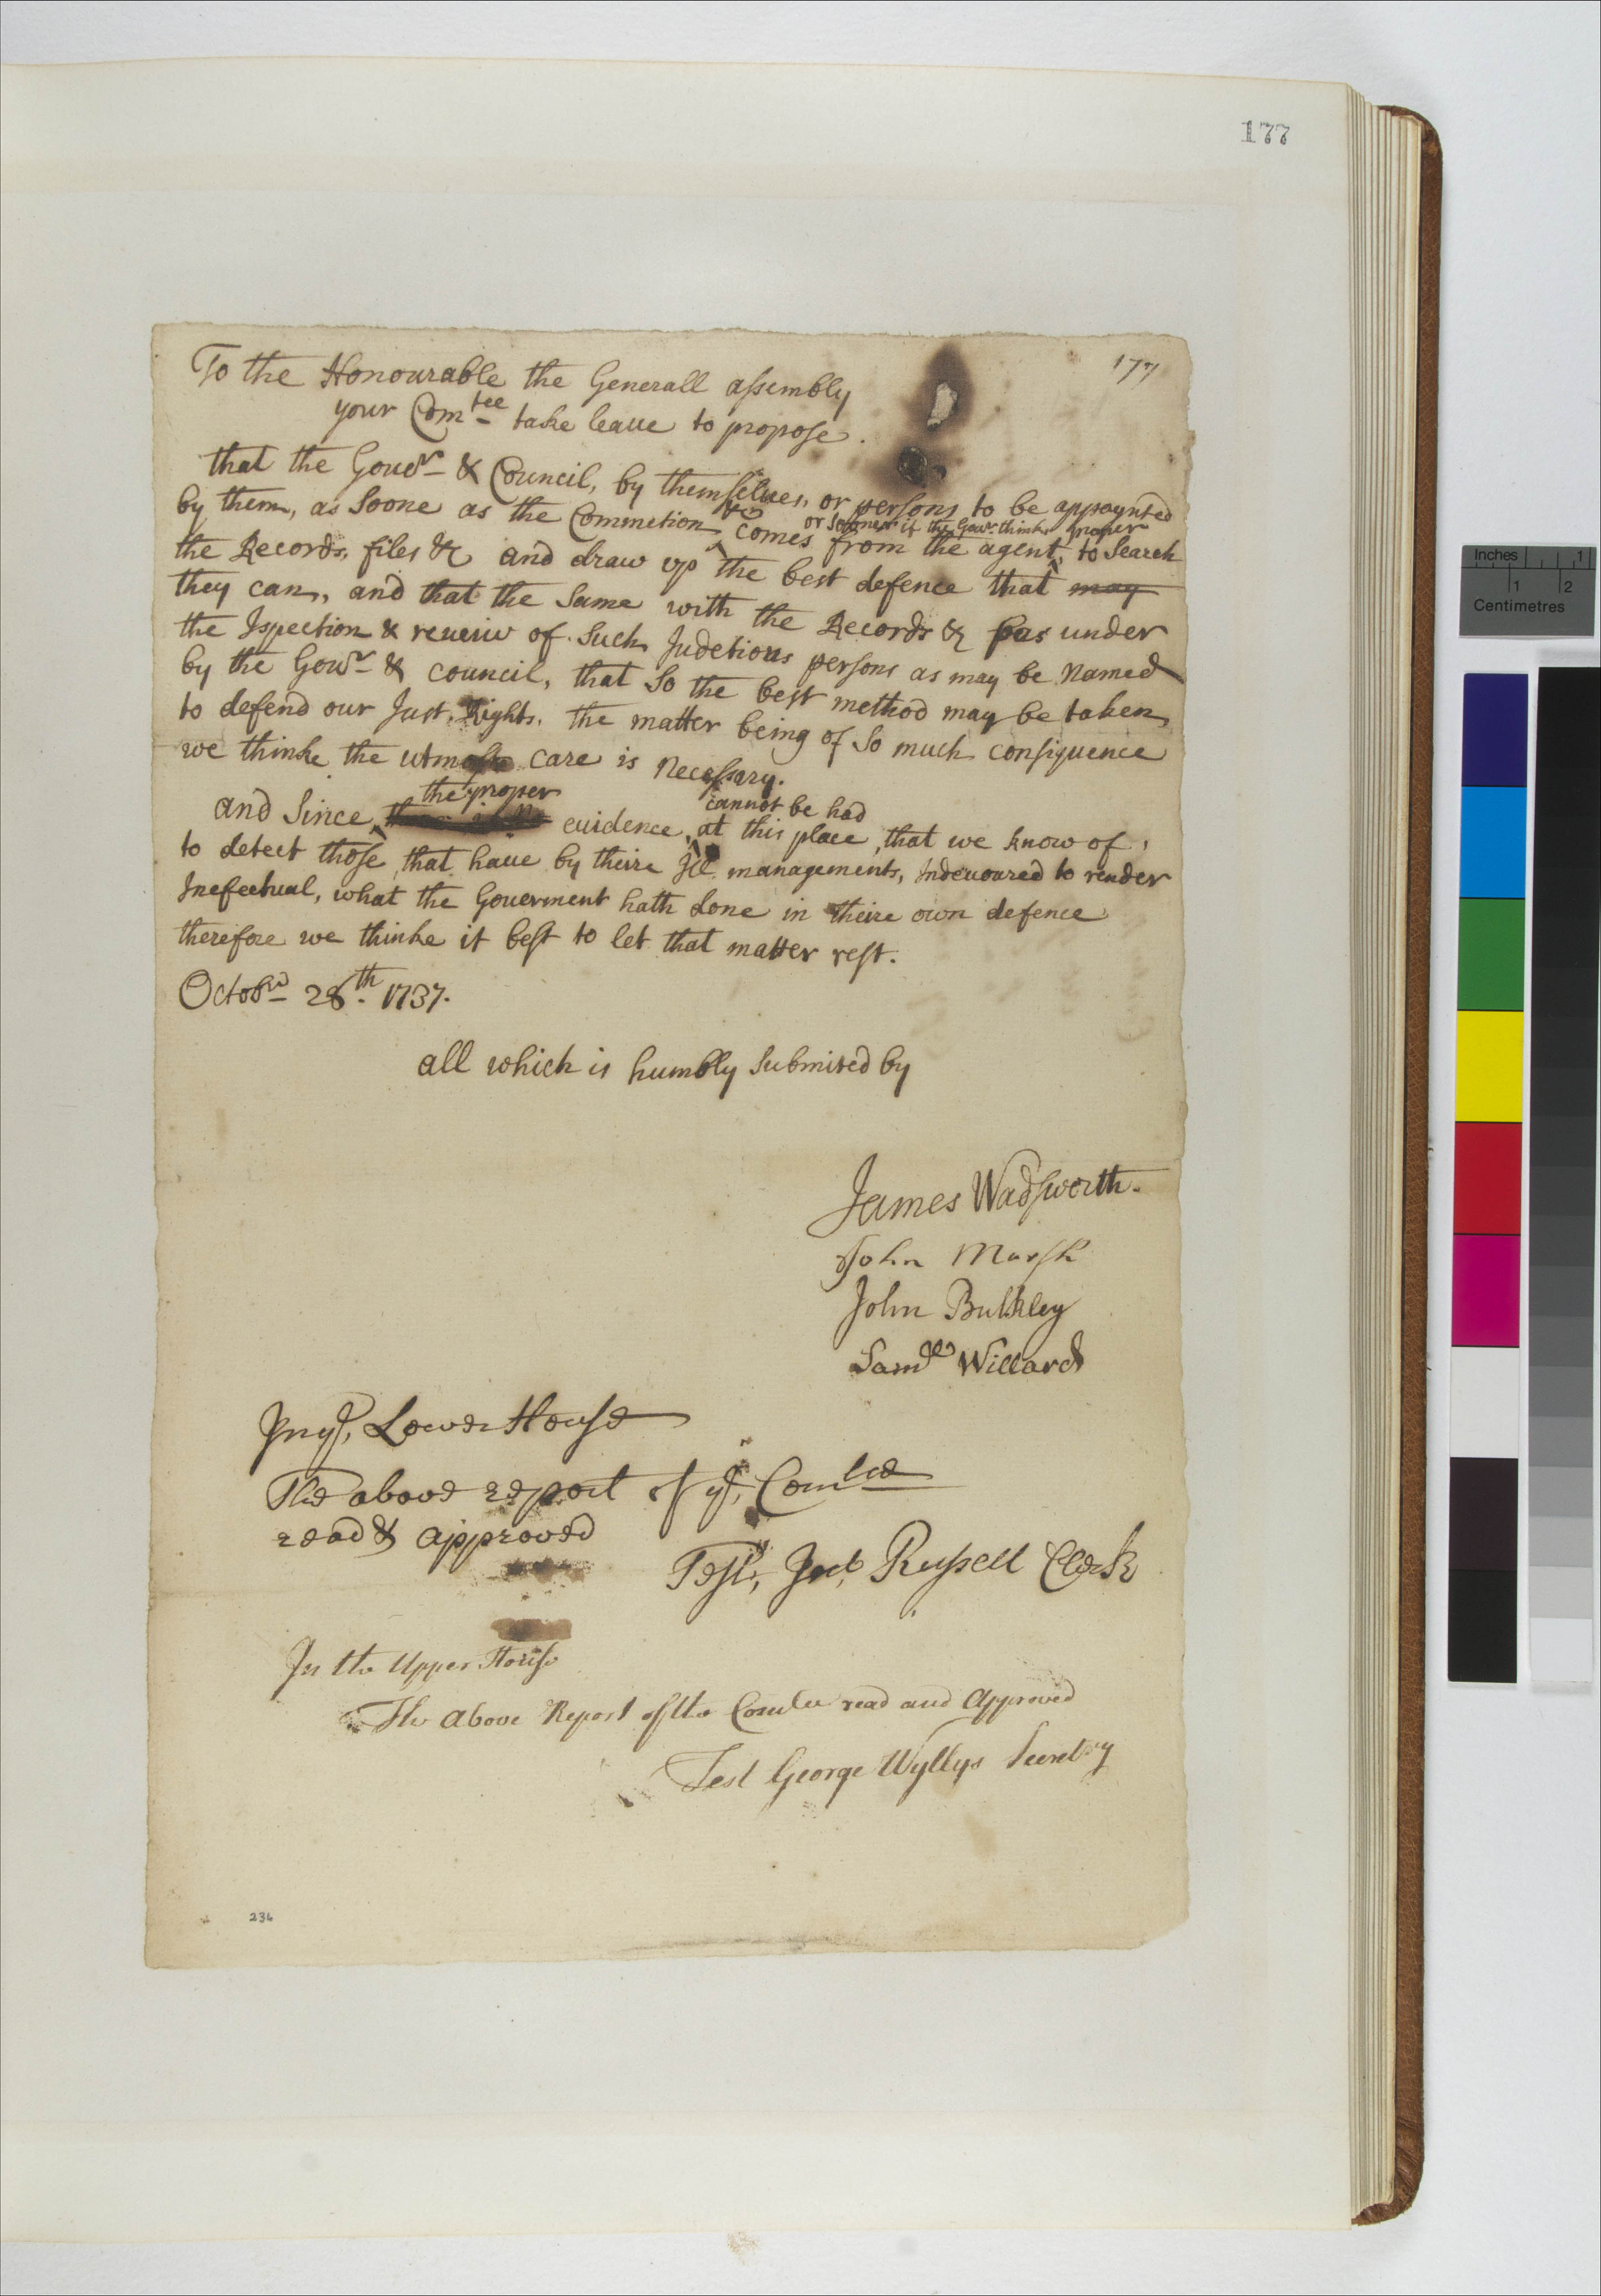 177
177
To the Honourable the Generall assembly
your Comtee take leaue to propose.
that the Gouer & Council, by themselues, or persons to be appoynted
by them, as Soone as the Commetion &c comes from the agent, or sooner if the Gour thinks proper to Search
the Records, files &c and draw up the best defence that may
they can, and that the Same with the Records &c pas under
the Ispection & reueiw of Such Judetious persons as may be Named
by the Gour & council, that So the best method may be taken
to defend our Just Rights. the matter being of So much consiquence
we thinke the utmost care is Necessary.
and Since the proper euidence cannot be had at this place, that we know of,
to detect those that haue by theire Ill managements, Indeuoured to render
Inefectual, what the Gouerment hath done in theire own defence
therefore we thinke it best to let that matter rest.
Octobr 28th 1737.
all which is humbly Submited by
James Wadsworth.
John Marsh
John Bulkley
Samll Willard
In ye Lower House
The above report of ye Comtee
read & approved
Test, Jno Russell Clerk
In the Upper House
The above Report of the Comtee read and Approved
Test George Wyllys Secretry
234
Inches 1
1 2
Centimetres